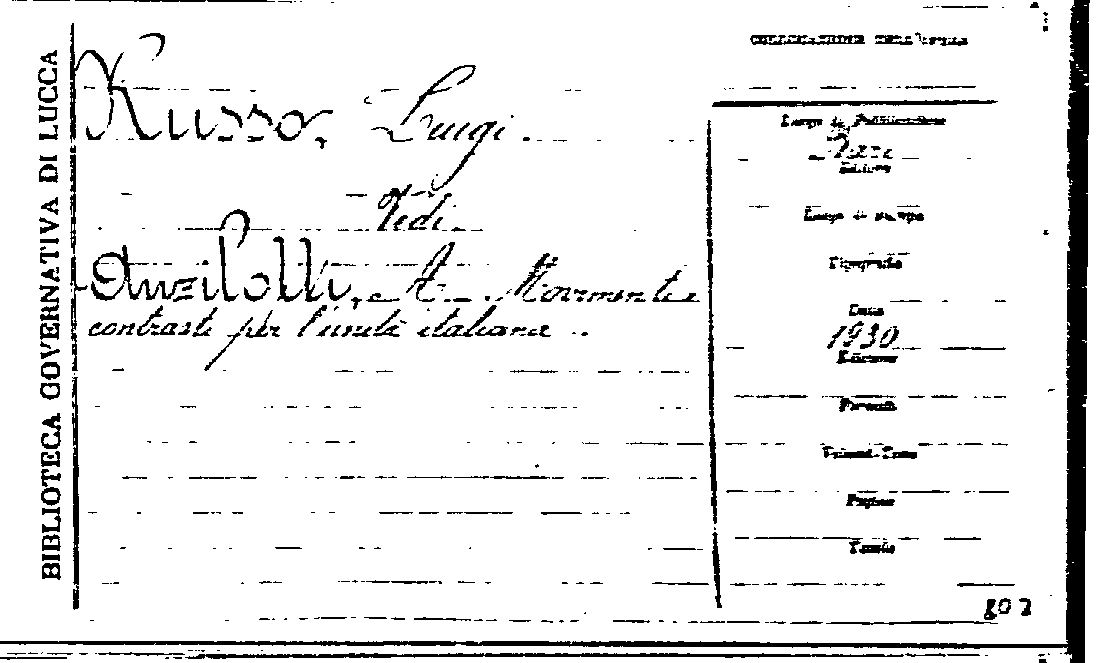 BIBLIOTECA GOVERNATIVA DI LUCCA
Russo, Luigi.
Vedi
Anzilotti, A. - Movimenti e
contrasti per l'unità italiana ..
COLLOCAZIONE DELL'OPERA
Luogo di Pubblicazione
Editore
Luogo di stampa
Tipografia
Data
1930
Edizione
Formato
Volumi-Tomo
Pagine
Tavole
802